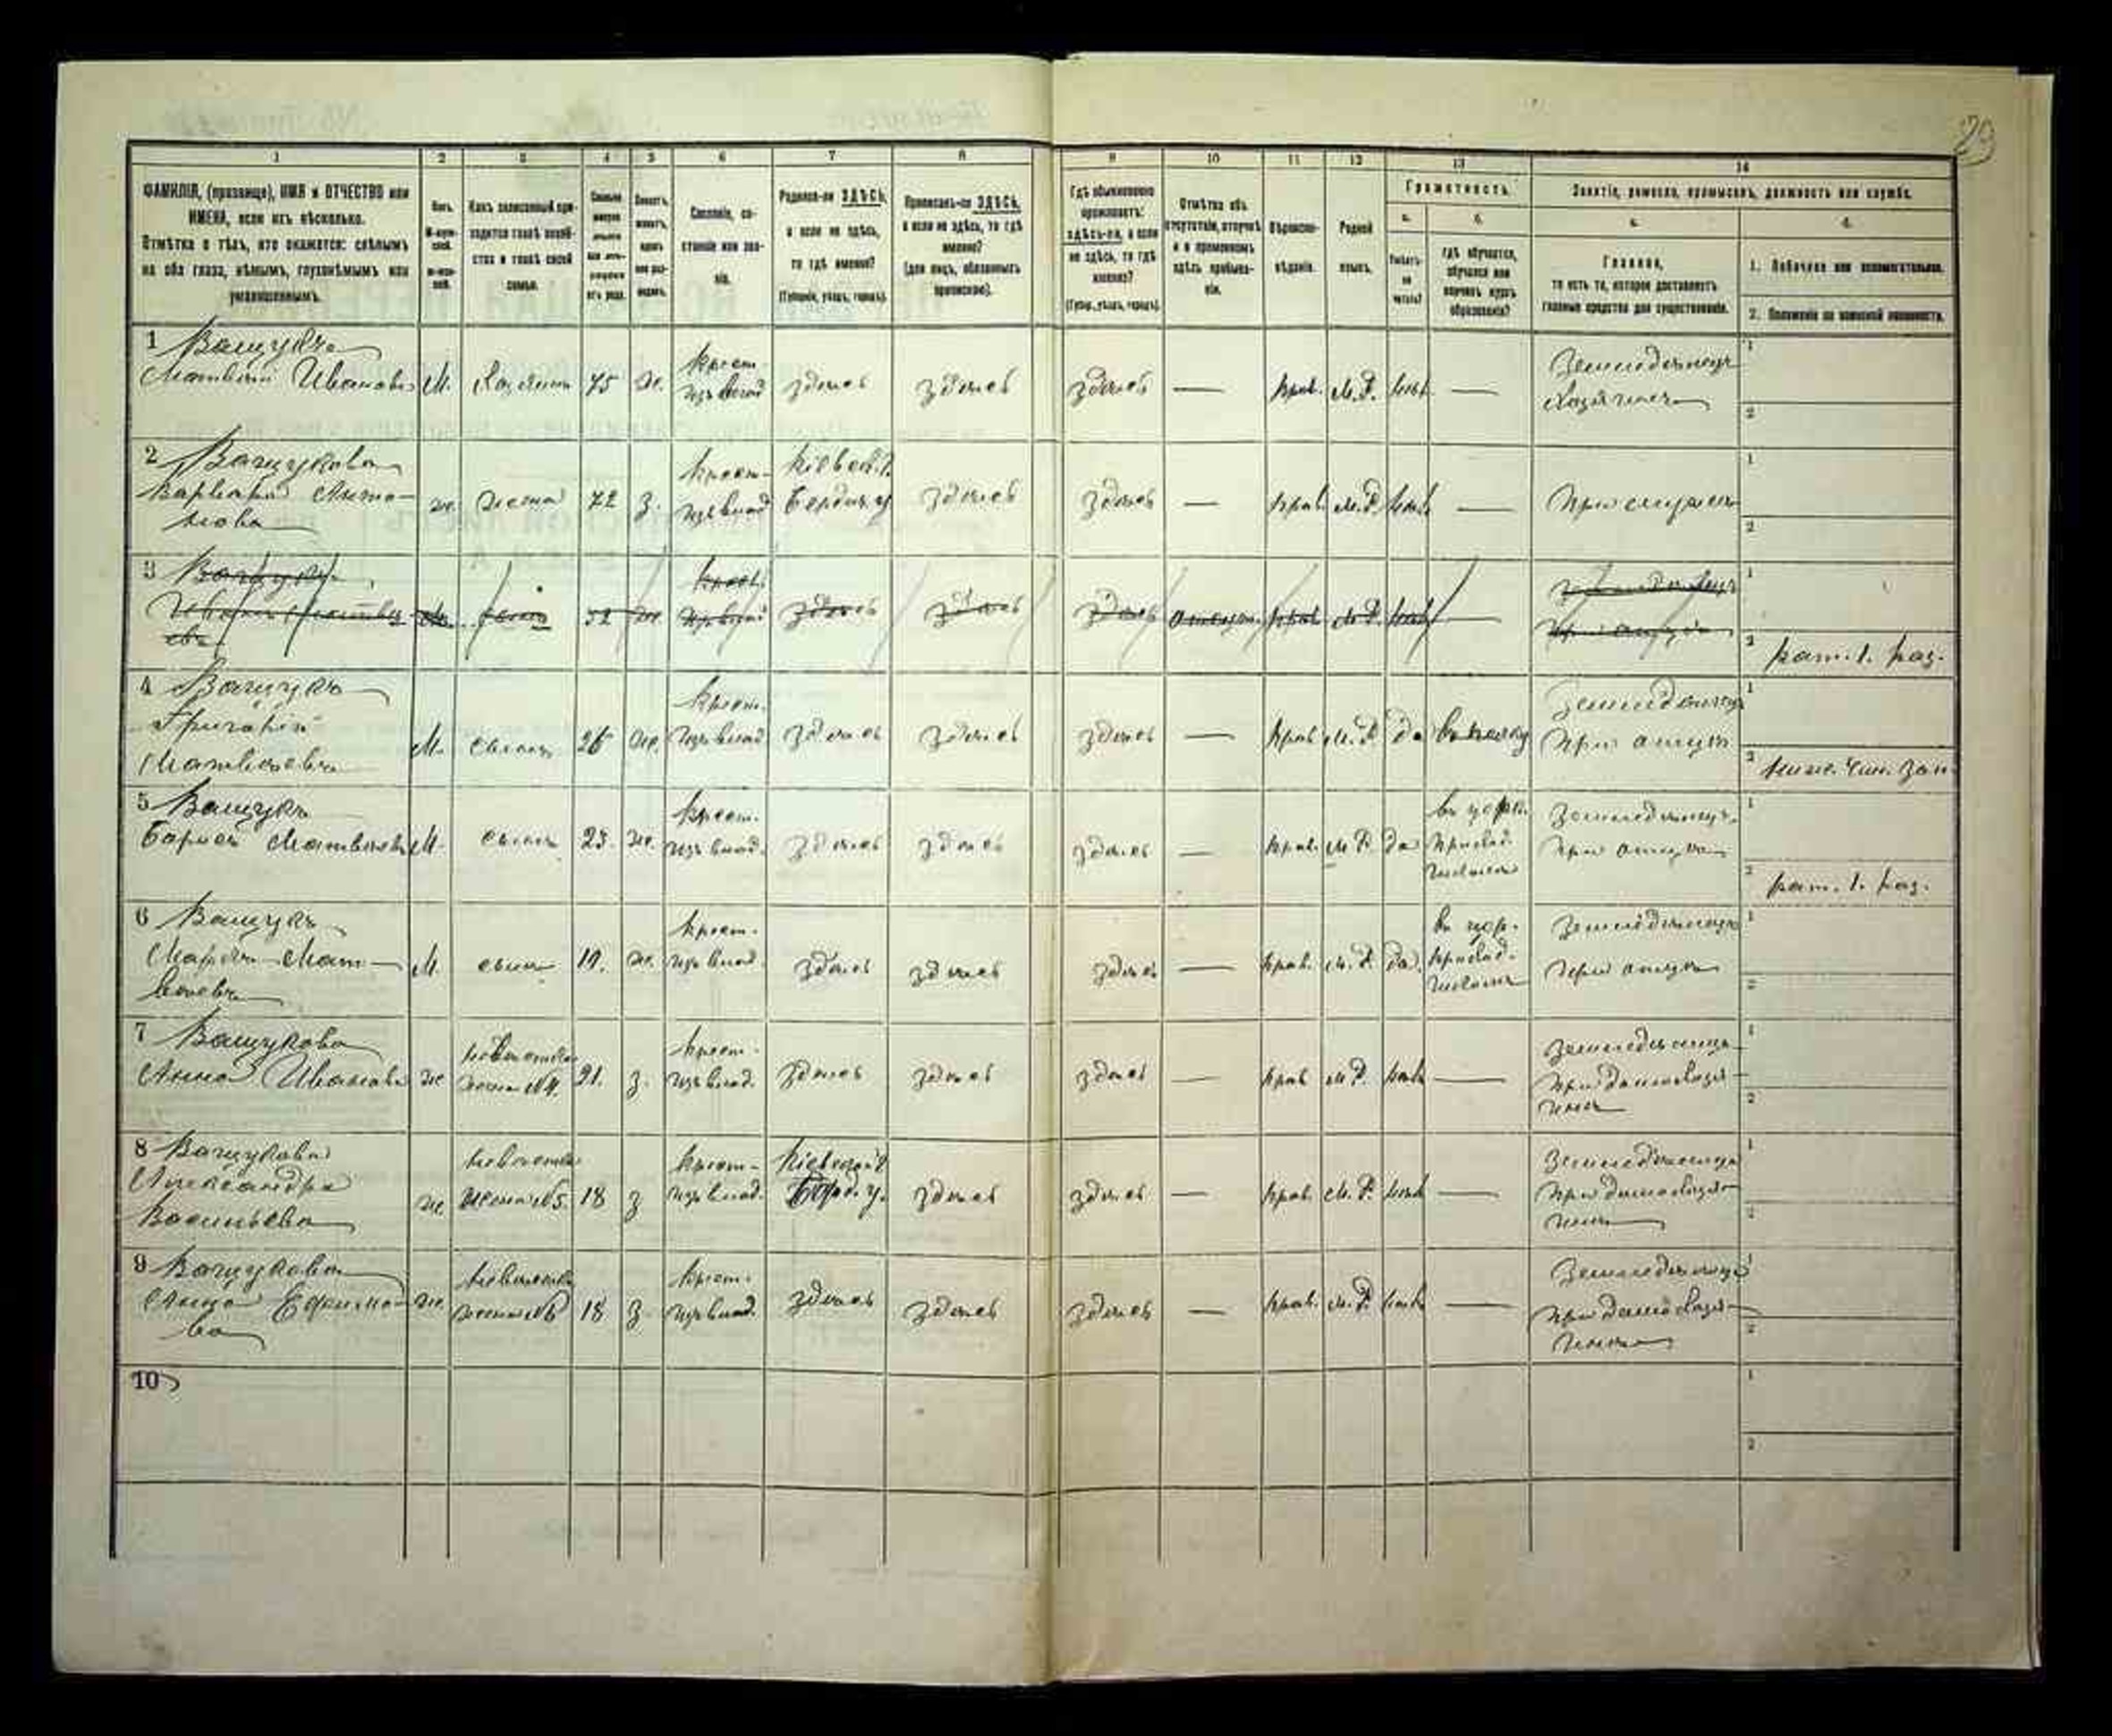 29
1 2 3 4 5 6 7 8 9 10 11 12 13 14
ФАМИЛІЯ, (прозвище), ИМЯ и ОТЧЕСТВО или
ИМЕНА, если ихъ нѣсколько.
Отмѣтка о тѣхъ, кто окажется: слѣпымъ
на оба глаза, нѣмымъ, глухонѣмымъ или
умалишеннымъ.
Полъ.
Какъ записанный при-
ходится главѣ хозяй-
ства и главѣ своей
семьи.
Сословіе, со-
стояніе или зва-
ніе.
Родился-ли ЗДѢСЬ,
а если не здѣсь,
то гдѣ именно?
(Губернія, уѣздъ, городъ).
Приписанъ-ли ЗДѢСЬ,
а если не здѣсь, то гдѣ
именно?
(для лицъ, обязанныхъ
припискою).
Гдѣ обыкновенно
проживаетъ:
здѣсь-ли, а если
не здѣсь, то гдѣ
именно?
(Губер., уѣздъ, городъ).
Отмѣтка объ
отсутствіи, отлучкѣ
и о временномъ
здѣсь пребыва-
ніи.
Вѣроиспо-
вѣданіе.
Родной
языкъ.
Грамотность.
а. б.
Умѣетъ-
ли
читать?
гдѣ обучается,
обучался или
кончилъ курсъ
образованія?
Занятіе, ремесло, промыселъ, должность или служба.
а. б.
Главное,
то есть то, которое доставляетъ
главныя средства для существованія.
1. Побочное или вспомогательное.
2. Положеніе по воинской повинности.
1 Ващукъ
Матвѣй Ивановъ М. Хозяинъ 75 ж. крест. изъ влад здѣсь здѣсь здѣсь — прав. М.Р. нѣтъ — Земледѣлецъ
Хозяинъ
2 Ващукова
Варвара Анто-
нова ж. жена 72 з. крест. изъ влад Кіевск. г.
Бердич. у здѣсь здѣсь — прав. М.Р. нѣтъ — при мужѣ
3 Ващукъ
Иванъ Матвѣ
евъ М. сынъ ж. крест. изъ влад здѣсь здѣсь здѣсь прав М.Р. нѣтъ — рат. 1. раз.
4 Ващукъ
Григорій
Матвѣевъ М. сынъ 26 ж. крест. изъ влад здѣсь здѣсь здѣсь — прав М.Р. да Земледѣлецъ
при отцѣ
ниж. чин. зап.
5 Ващукъ
Борисъ Матвѣевъ М. сынъ 23 ж. крест. изъ влад. здѣсь здѣсь здѣсь — прав. М.Р. да въ церк.
приход.
школѣ Земледѣлецъ
при отцѣ
рат. 1. раз.
6 Ващукъ
Марко Мат-
вѣевъ М. сынъ 19. ж. крест. изъ влад. здѣсь здѣсь здѣсь — прав. М.Р. да. въ цер.
приход.
школѣ Земледѣлецъ
при отцѣ
7 Ващукова
Анна Иванова ж невѣстка
жена №4. 21. з. крест. изъ влад. здѣсь здѣсь здѣсь — прав М.Р. нѣтъ — Земледѣлица
при домохозя-
инѣ
8 Ващукова
Александра
Васильева ж. невѣстка
жена №5. 18 з крест. изъ влад. Кіевской г
Берд. у. здѣсь здѣсь — прав. М.Р. нѣтъ — Земледѣлица
при домохозя-
инѣ
9 Ващукова
Анна Ефимо-
ва ж. невѣстка
жена №6 18 з. крест. изъ влад. здѣсь здѣсь здѣсь — прав. М.Р. нѣтъ — Земледѣлица
при домохозя-
инѣ
10